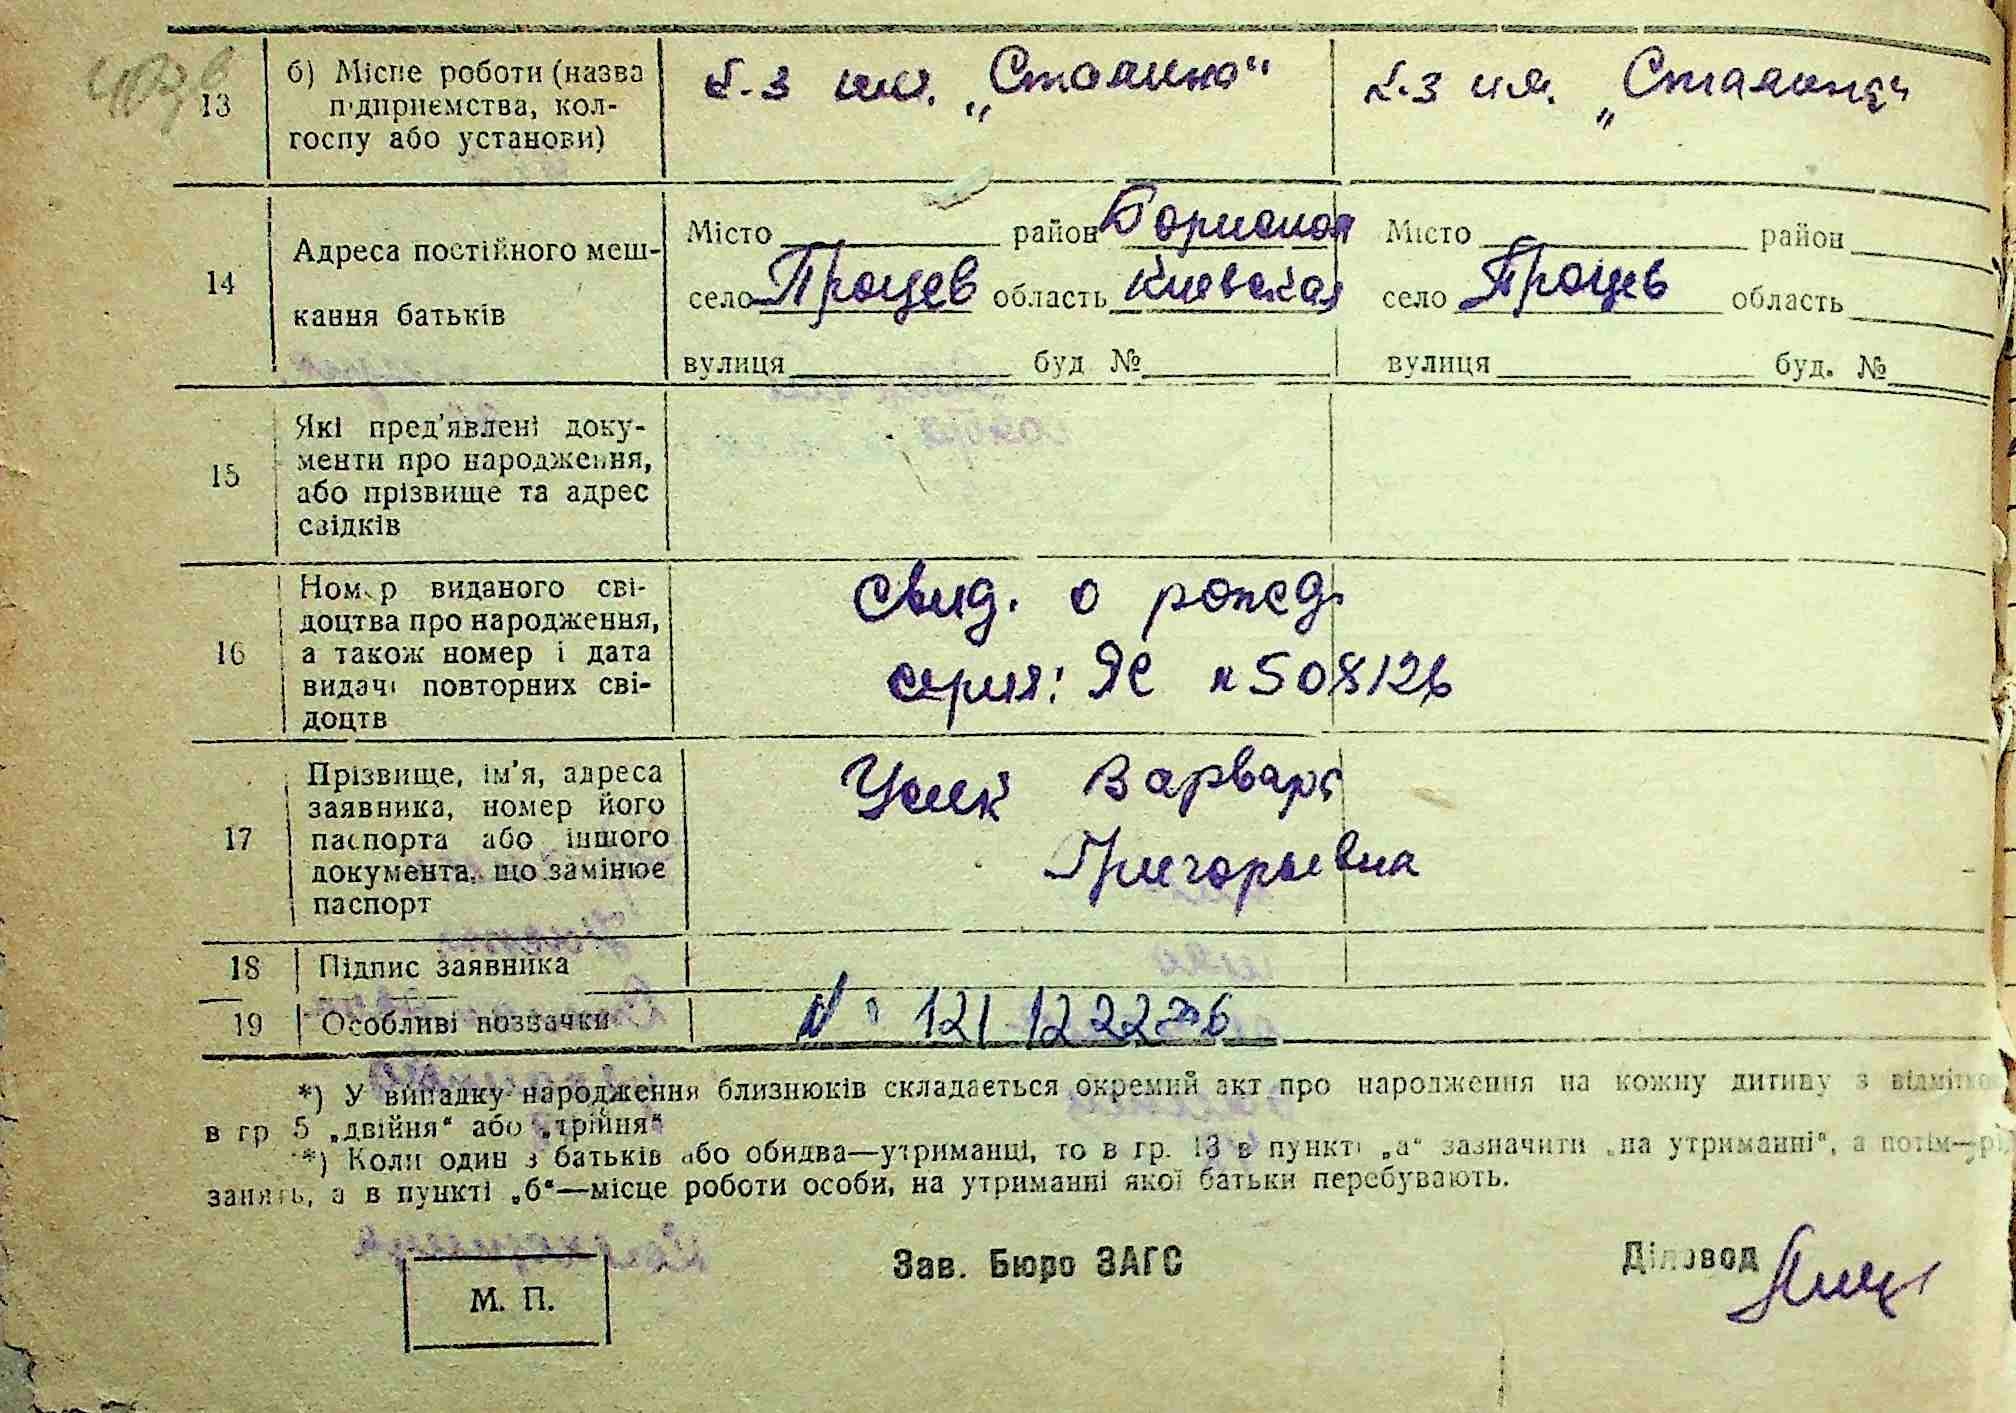 13 б) Місце роботи (назва к-з им. „Сталина“ к-з им. „Сталина“
підприємства, кол-
госпу або установи)
14 Адреса постійного меш-
кання батьків
Місто район Борисполь Місто район
село Процев область Киевская село Процев область
вулиця буд № вулиця буд. №
15 Які пред'явлені доку-
менти про народження,
або прізвище та адрес
свідків
16 Номер виданого сві-
доцтва про народження,
а також номер і дата
видачі повторних сві-
доцтв
Свид. о рожд.
серия: ЯС № 508126
17 Прізвище, ім'я, адреса
заявника, номер його
паспорта або іншого
документа, що замінює
паспорт
Усик Варвара
Григорьевна
18 Підпис заявника
19 Особливі позначки
*) У випадку народження близнюків складається окремий акт про народження на кожну дитину з відміткою
в гр 5 „двійня“ або „трійня“
*) Коли один з батьків або обидва—утриманці, то в гр. 13 в пункті „а“ зазначити „на утриманні“, а потім—рід
занять, а в пункті „б“—місце роботи особи, на утриманні якої батьки перебувають.
М. П. Зав. Бюро ЗАГС Діловод